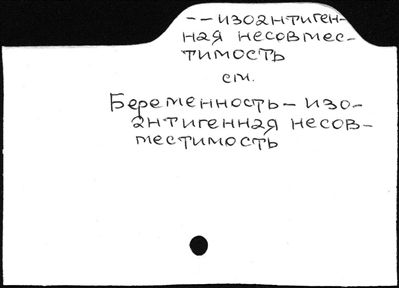 -- изоантиген-
ная несовмес-
тимость
см.
Беременность - изо-
антигенная несов-
местимость